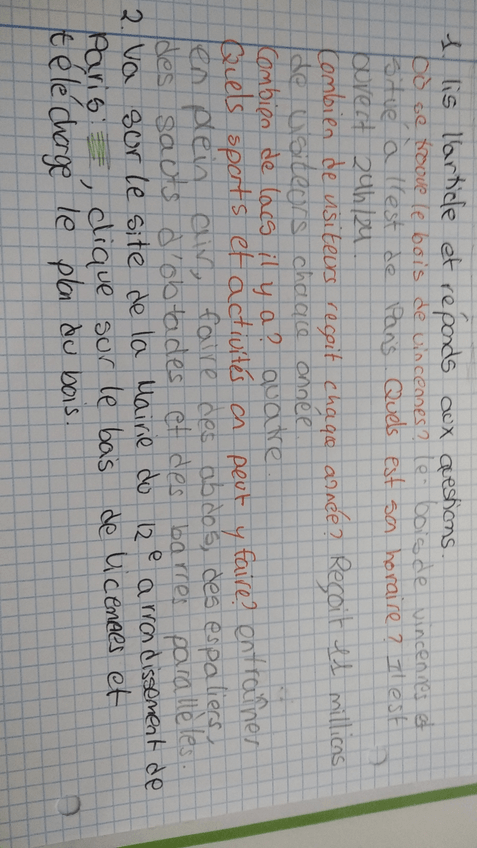 1. lis l'article et réponds aux questions.
Où se trouve le bois de vincennes? le bois de vincennes et
situé à l'est de Paris. Quels est son horaire? Il est
ouvert 24h/24.
Combien de visiteurs reçoit chaque année? Reçoit 11 millions
de visiteurs chaque année.
Combien de lacs il y a? quatre.
Quels sports et activités on peut y faire? entraîner
en plein air, faire des abdos, des espaliers,
des sauts d'obtacles et des barres parallèles.
2. Va sur le site de la Mairie du 12e arrondissement de
Paris, clique sur le bois de Vicennes et
télécharge le plan du bois.